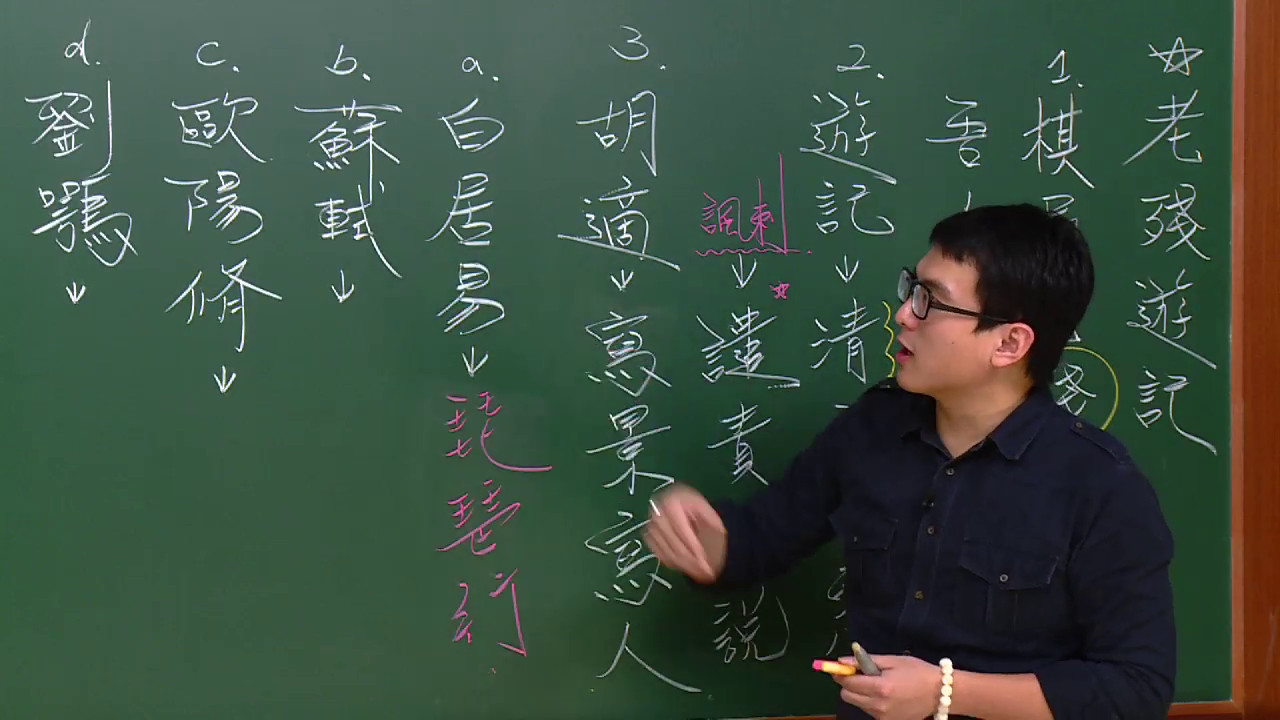 ☆老殘遊記
1. 棋
吾
2. 遊記→清
諷刺→譴責 說
3. 胡適→寫景寫人
a. 白居易→琵琶行
b. 蘇軾→
c. 歐陽修→
d. 劉鶚→